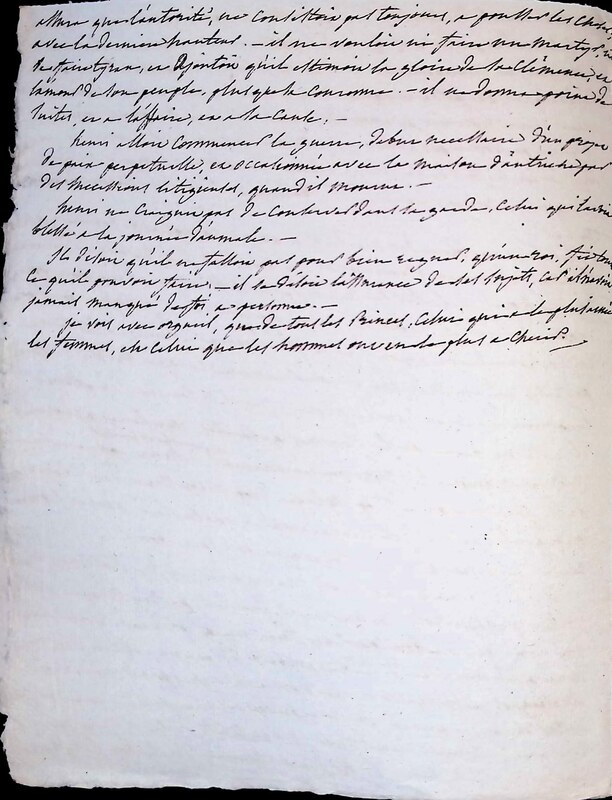 que l'autorité, ne consistoit pas toujours, a pousser les choses
avec la derniere hauteur. — il ne vouloit ni faire un martyr, ni
se faire tyran, en ajoutant qu'il estimoit la gloire de la Clémence, et
l'amour de son peuple, plus que la couronne. — il ne donna point de
suites, et a l'affaire, et a la cause. —
henri alloit commencer la guerre, debut necessaire d'un projet
de paix perpetuelle, et occasionnée avec la maison d'autriche par
des successions litigieuses, quand il mourut. —
henri ne craignit pas de conserver dans sa garde, celui qui l'avoit
blessé a la journée d'aumale. —
Il disoit qu'il ne falloit pas pour bien regner, qu'un roi, fit tout
ce qu'il pouvoit faire. — il se disoit l'assurance de ses sujets, car il n'avoit
jamais manqué de foi, a personne. —
je vois avec orgueil, que de tous les Princes, celui qui a le plus aimé
les femmes, est celui que les hommes ont eu le plus a cherir.